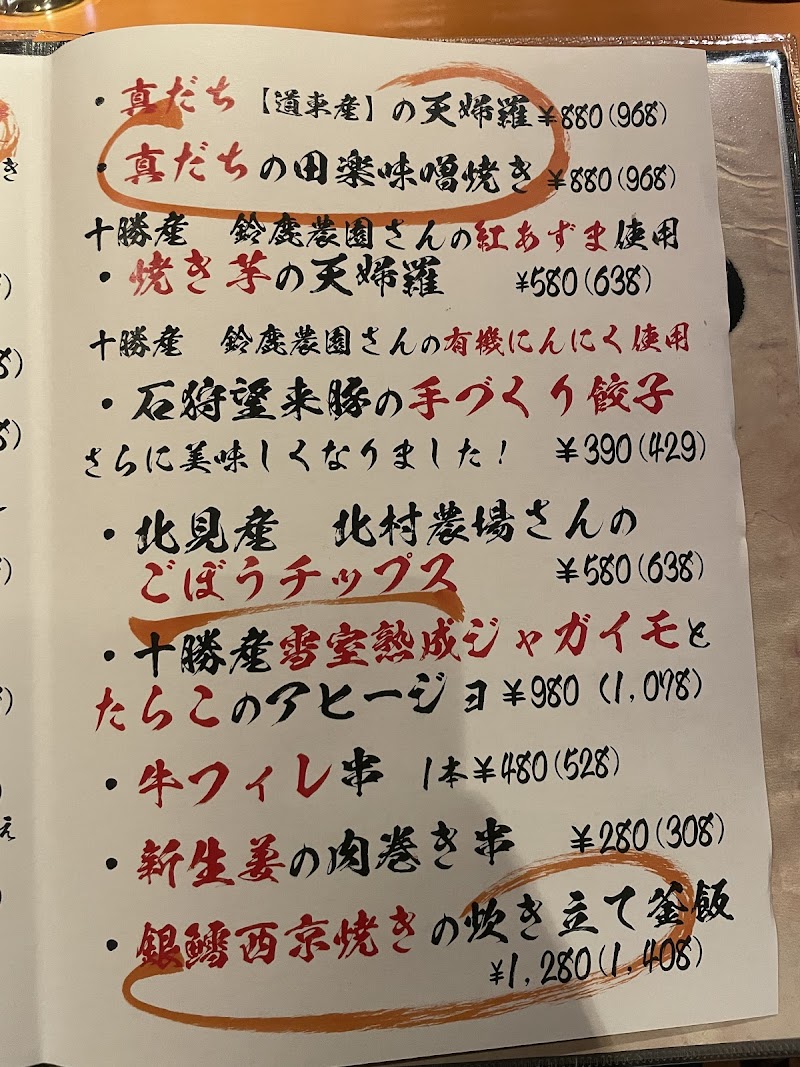 ・真だち【道東産】の天婦羅 ¥880(968)
・真だちの田楽味噌焼き ¥880(968)
十勝産　鈴鹿農園さんの紅あずま使用
・焼き芋の天婦羅　¥580(638)
十勝産　鈴鹿農園さんの有機にんにく使用
・石狩望来豚の手づくり餃子
さらに美味しくなりました！　¥390(429)
・北見産　北村農場さんの
ごぼうチップス　¥580(638)
・十勝産雪室熟成ジャガイモと
たらこのアヒージョ ¥980 (1,078)
・牛フィレ串　1本¥480(528)
・新生姜の肉巻き串　¥280(308)
・銀鱈西京焼きの炊き立て釜飯
¥1,280(1,408)